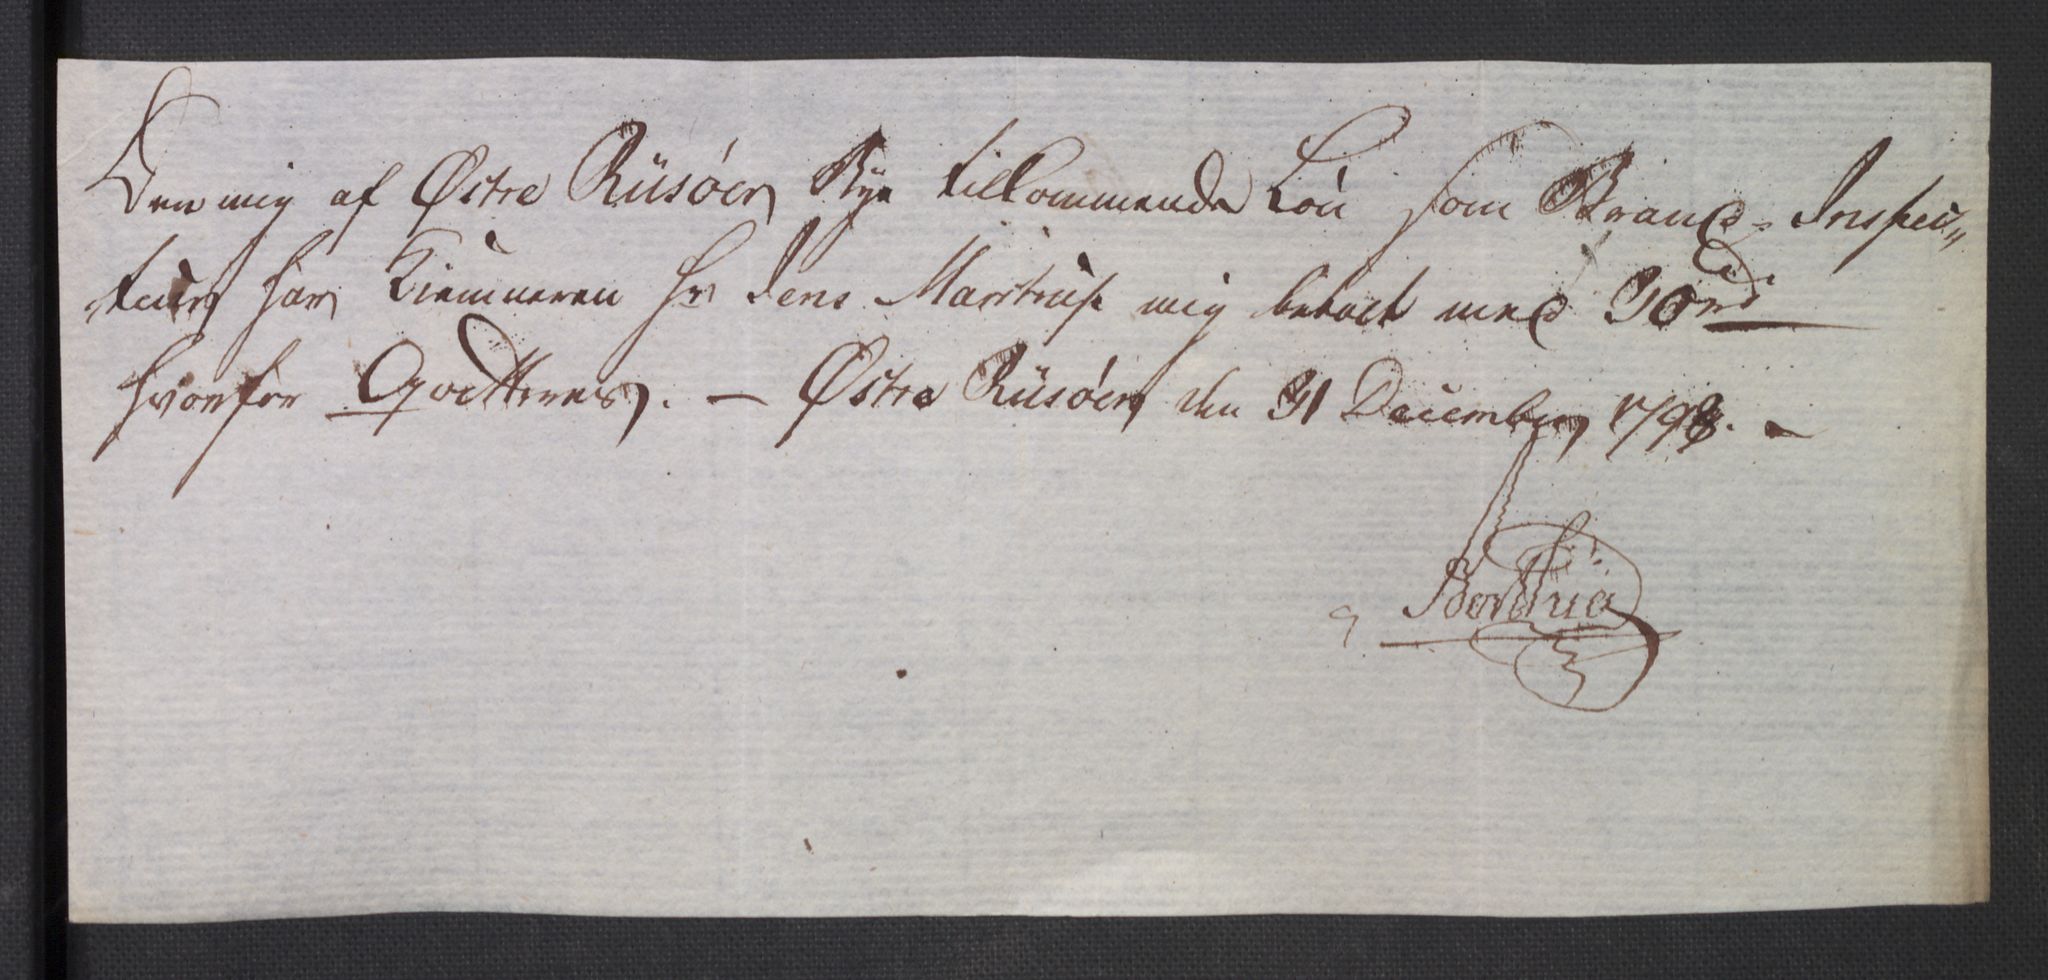 Den mig af Østre Riisöer Bye tilkommende Lön som Brand-Inspec„
„teur har Kiemneren Hr Jens Marstrup mig betalt med 30 rd
hvorfor Qvitteres. – Østre Riisöer den 31 December 1798. –